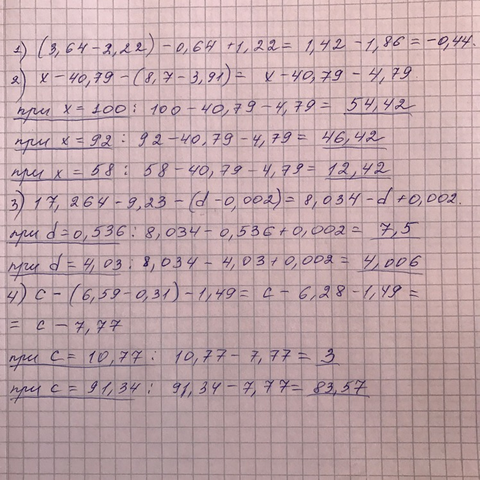 1) (3,64-2,22) -0,64 +1,22= 1,42 -1,86=-0,44.
2) x-40,79-(8,7-3,91)= x-40,79-4,79
при x=100: 100-40,79-4,79= 54,42
при x=92: 92-40,79-4,79= 46,42
при x=58: 58-40,79-4,79= 12,42
3) 17,264-9,23-(d-0,002)=8,034-d+0,002.
при d=0,536: 8,034-0,536+0,002= 7,5
при d=4,03: 8,034-4,03+0,002= 4,006
4) c-(6,59-0,31)-1,49= c-6,28-1,49=
= c-7,77
при c=10,77: 10,77-7,77=3
при c=91,34: 91,34-7,77=83,57